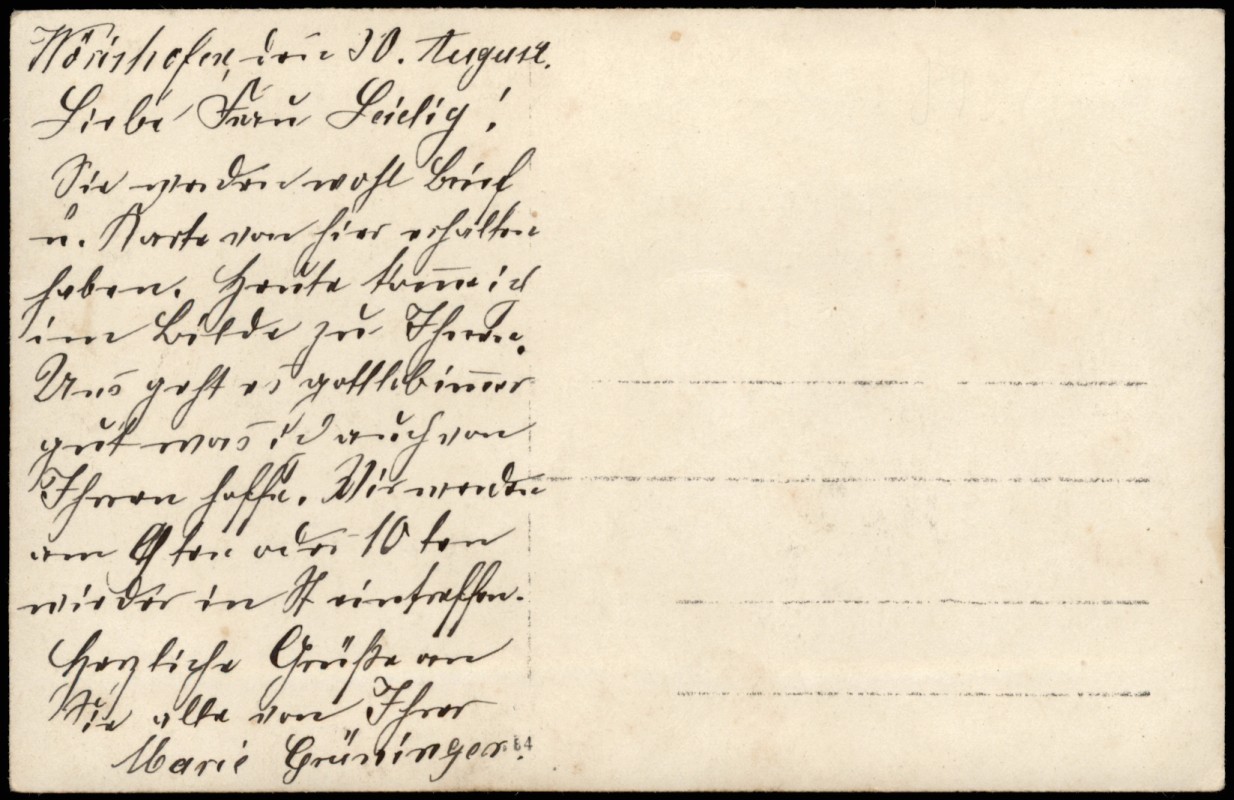 Wörishofen, den 30. August.
Liebe Frau Leidig!
Sie werden wohl Brief
u. Karte von hier erhalten
haben. Heute kom̅e ich
im Bilde zu Ihnen.
Uns geht es gottlob im̅er
gut was ich auch von
Ihnen hoffe. Wir werden
am 9ten oder 10ten
wieder in St eintreffen.
Herzliche Grüße an
Sie alle von Ihrer
Marie Grüninger.
64